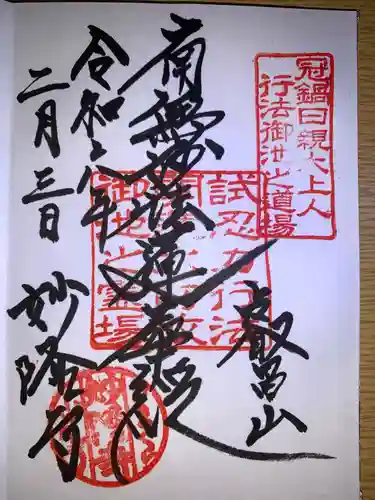 冠鍋日親大上人
行法御池之道場
叡昌山
南無妙法蓮華経
令和八年
二月三日
妙隆寺
試忍力行法
御池之霊場